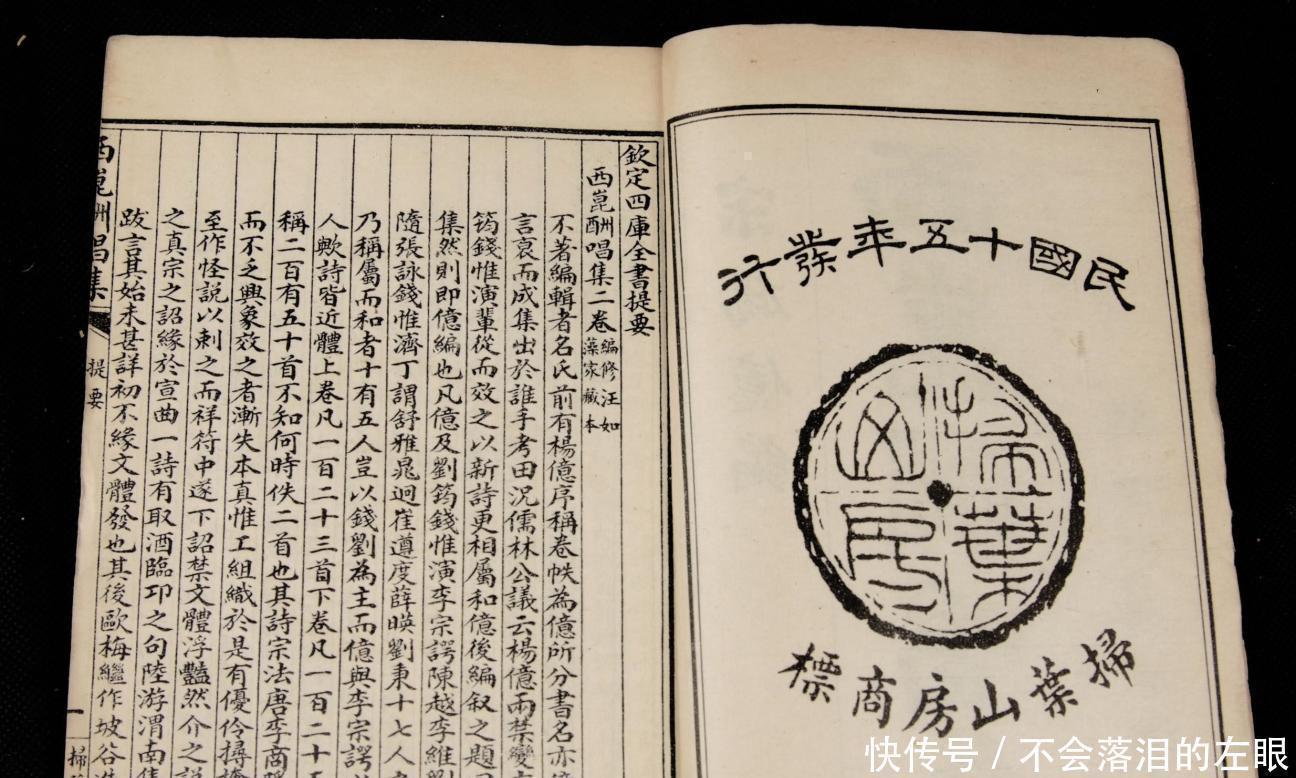 民國十五年發行
掃葉山房
掃葉山房商標
欽定四庫全書提要
西崑酬唱集二卷
編修汪如
藻家藏本
不著編輯者名氏前有楊億序稱卷帙為億所分書名亦億
言裒而成集出於誰手考田況儒林公議云楊億兩禁變
筠錢惟演輩從而效之以新詩更相屬和億後編叙之題
集然則即億編也凡億及劉筠錢惟演李宗諤陳越李維劉
隨張詠錢惟濟丁謂舒雅晁迥崔遵度薛暎劉秉十七人
乃稱屬而和者十有五人豈以錢劉為主而億與李宗諤
人歟詩皆近體上卷凡一百二十三首下卷凡一百二十五
稱二百有五十首不知何時佚二首也其詩宗法唐李商隱
而不乏興象效之者漸失本真惟工組織於是有優伶撏撦
至作怪說以刺之而祥符中遂下詔禁文體浮豔然介之說
之真宗之詔緣於宣曲一詩有取酒臨邛之句陸游渭南集
跋言其始末甚詳初不緣文體發也其後歐梅繼作坡谷
西崑酬唱集
提要
一
掃
快传号 / 不会落泪的左眼